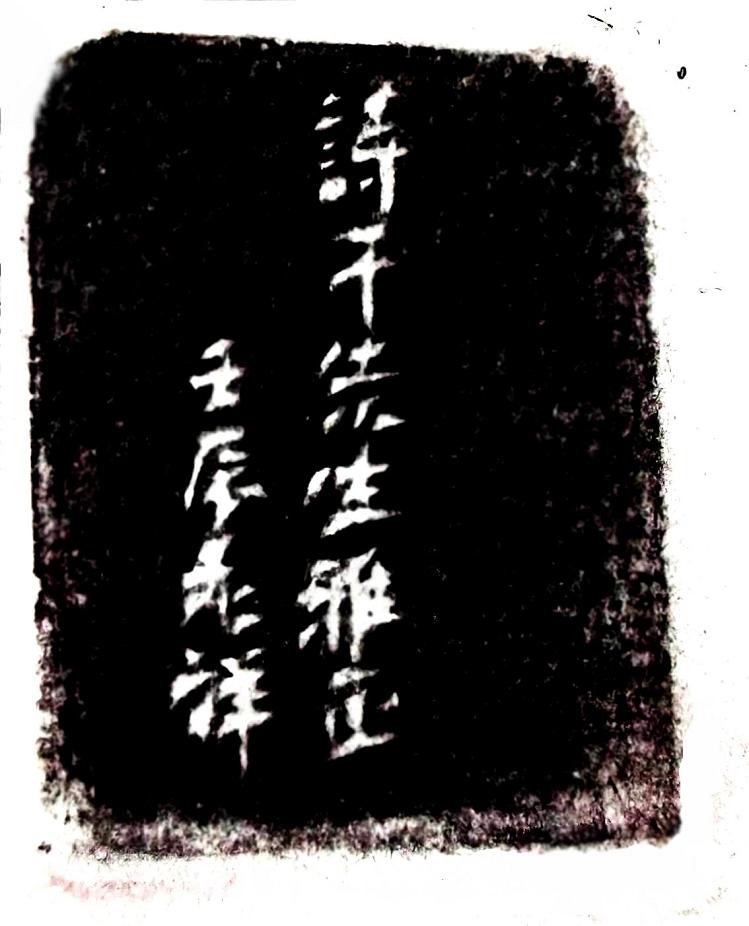 詩干先生雅正
壬辰兆祥